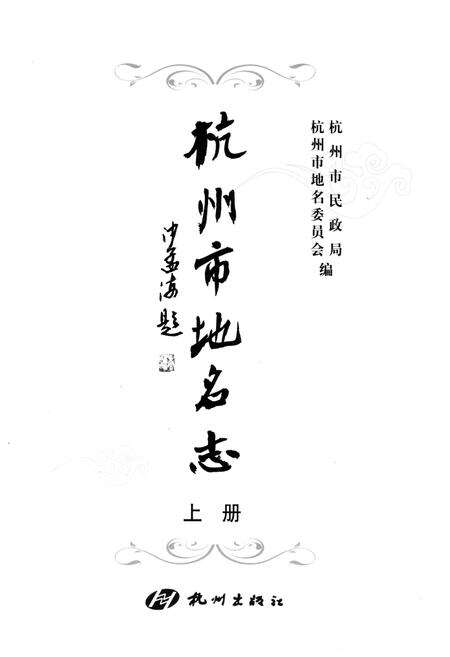 杭州市民政局
杭州市地名委员会 编
杭州市地名志
沙孟海题
上册
杭州出版社